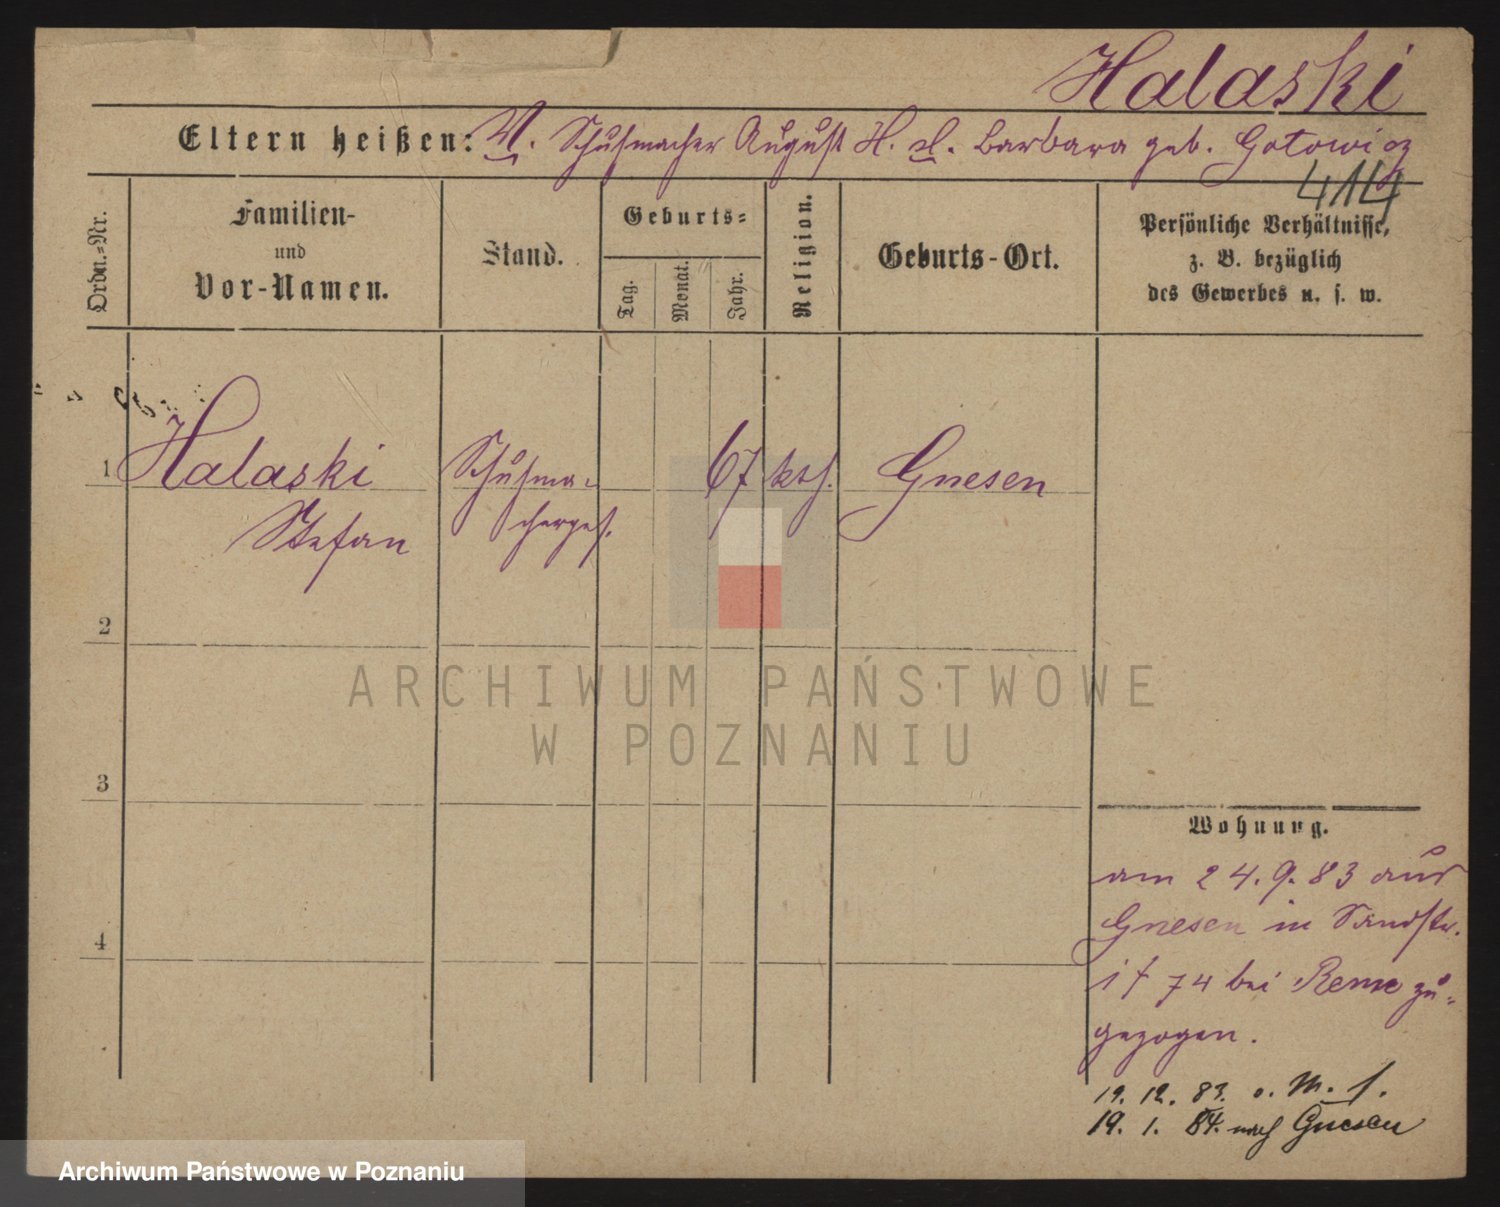 Halaski
Eltern heißen: V. Schuhmacher August H. M. Barbara geb. Gotowicz
414
Ordn.-Nr.
Familien-
und
Vor-Namen.
Stand.
Geburts=
Tag.
Monat.
Jahr.
Religion.
Geburts-Ort.
Persönliche Verhältnisse,
z. B. bezüglich
des Gewerbes u. s. w.
1 Halaski Schuhma- 67 kth. Gnesen
Stefan cherges.
2
3
4
Wohnung.
am 24.9.83 aus
Gnesen in Sandstr.
74 bei zu-
gezogen.
19. 12. 83. o. M. f.
19. 1. 84. nach Gnesen
ARCHIWUM PAŃSTWOWE
W POZNANIU
Archiwum Państwowe w Poznaniu